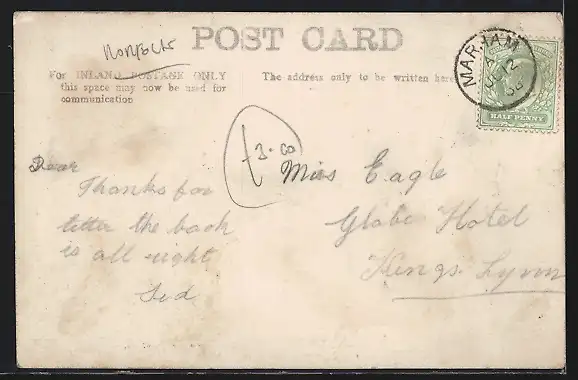 Norfolk
POST CARD
For INLAND POSTAGE ONLY
this space may now be used for
communication
The address only to be written here
MARHAM
JU 12
HALF PENNY
3.00
Dear
Thanks for
letter the book
is all right
Sid
Miss Eagle
Globe Hotel
Kings Lynn